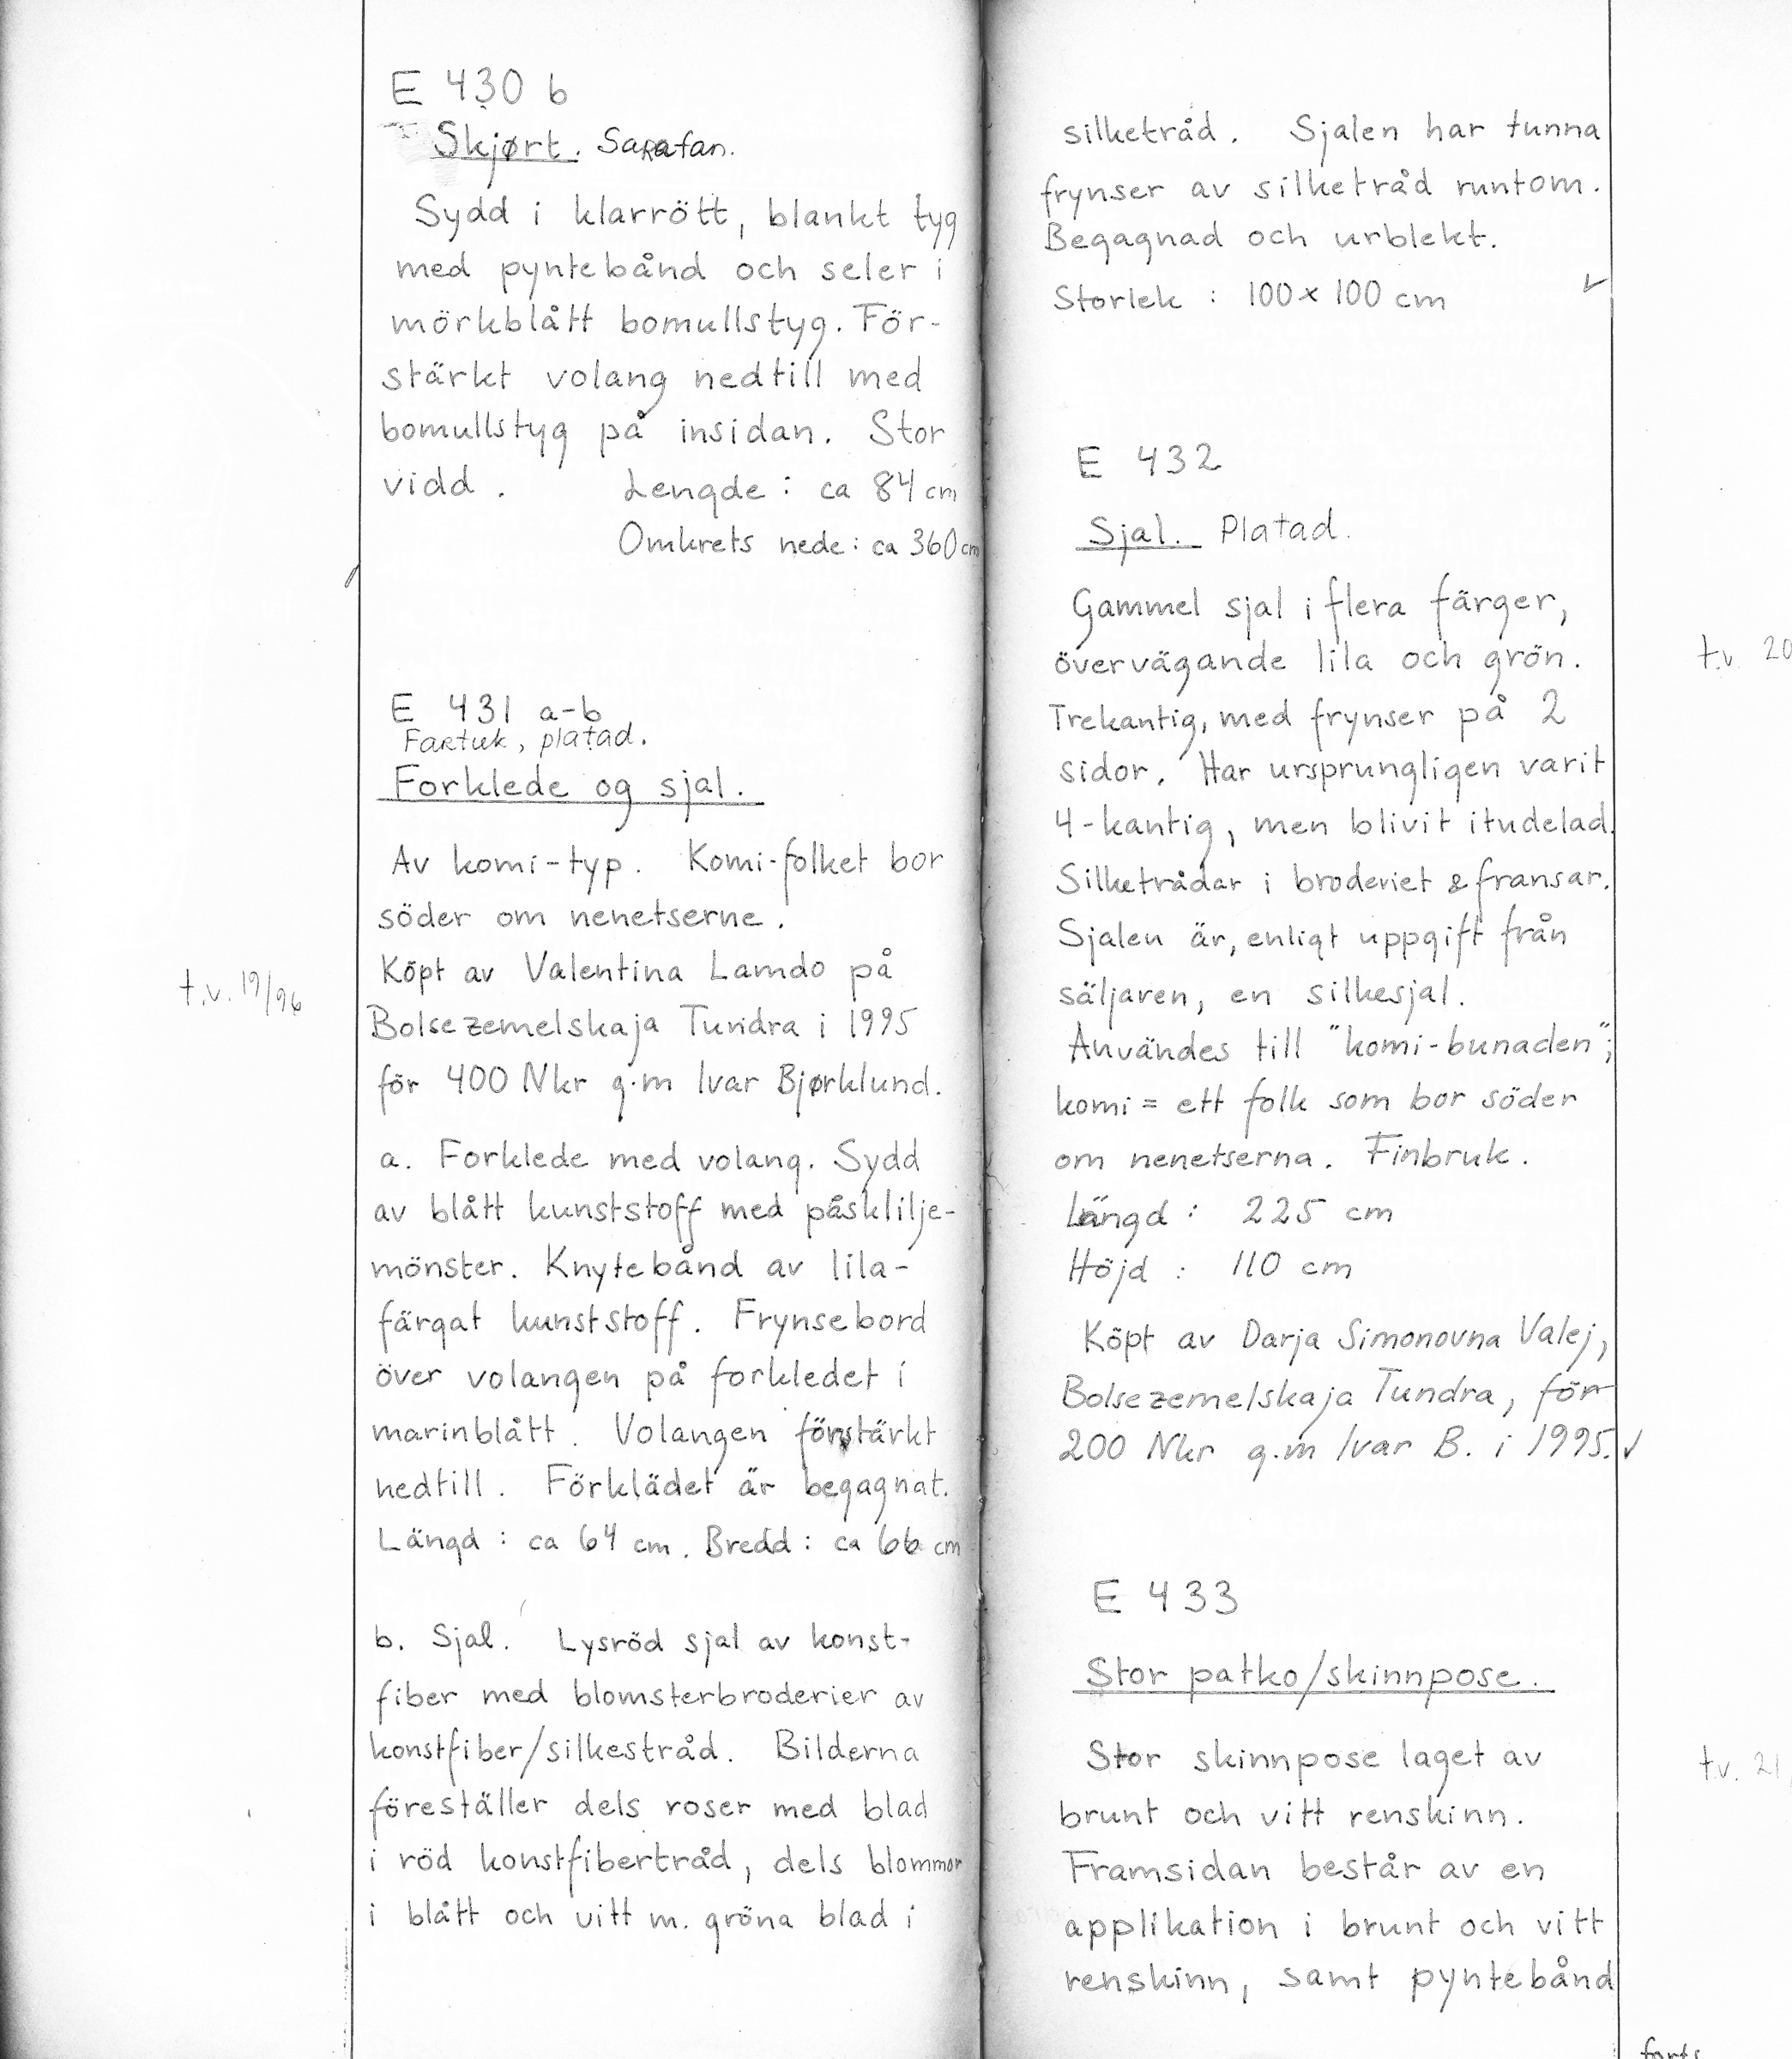 E 430 b
Skjørt. Sarafan.
Sydd i klarrött, blankt tyg
med pyntebånd och seler i
mörkblått bomullstyg. För-
stärkt volang nedtill med
bomullstyg på insidan. Stor
vidd. Lengde: ca 84 cm
Omkrets nede: ca 360 cm
E 431 a-b
Fartuk, platad.
Forklede og sjal.
Av komi-typ. Komi-folket bor
söder om nenetserne.
t.v. 19/96
Köpt av Valentina Lamdo på
Bolsezemelskaja Tundra i 1995
för 400 Nkr g.m Ivar Bjørklund.
a. Forklede med volang. Sydd
av blått kunststoff med påsklilje-
mönster. Knytebånd av lila-
färgat kunststoff. Frynsebord
över volangen på forkledet i
marinblått. Volangen förstärkt
nedtill. Förklädet är begagnat.
Längd: ca 64 cm. Bredd: ca 66 cm
b. Sjal. Lysröd sjal av konst-
fiber med blomsterbroderier av
konstfiber/silkestråd. Bilderna
föreställer dels roser med blad
i röd konstfibertråd, dels blommor
i blått och vitt m. gröna blad i
silketråd. Sjalen har tunna
frynser av silketråd runtom.
Begagnad och urblekt.
Storlek: 100 x 100 cm
E 432
Sjal. Platad.
Gammel sjal i flera färger,
övervägande lila och grön.
t.v. 20
Trekantig, med frynser på 2
sidor. Har ursprungligen varit
4-kantig, men blivit itudelad.
Silketrådar i broderiet & fransar.
Sjalen är, enligt uppgift från
säljaren, en silkesjal.
Användes till "komi-bunaden";
komi = ett folk som bor söder
om nenetserna. Finbruk.
Längd: 225 cm
Höjd: 110 cm
Köpt av Darja Simonovna Valej,
Bolsezemelskaja Tundra, för
200 Nkr g.m Ivar B. i 1995.
E 433
Stor patko/skinnpose.
Stor skinnpose laget av
t.v. 21
brunt och vitt renskinn.
Framsidan består av en
applikation i brunt och vitt
renskinn, samt pyntebånd
forts